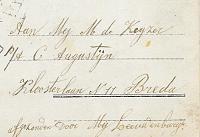 Aan Mej M. de Keyzer
p/a C. Augustijn
Kloosterlaan No 11 Breda
afgezonden door Mej Leeuwenburgh